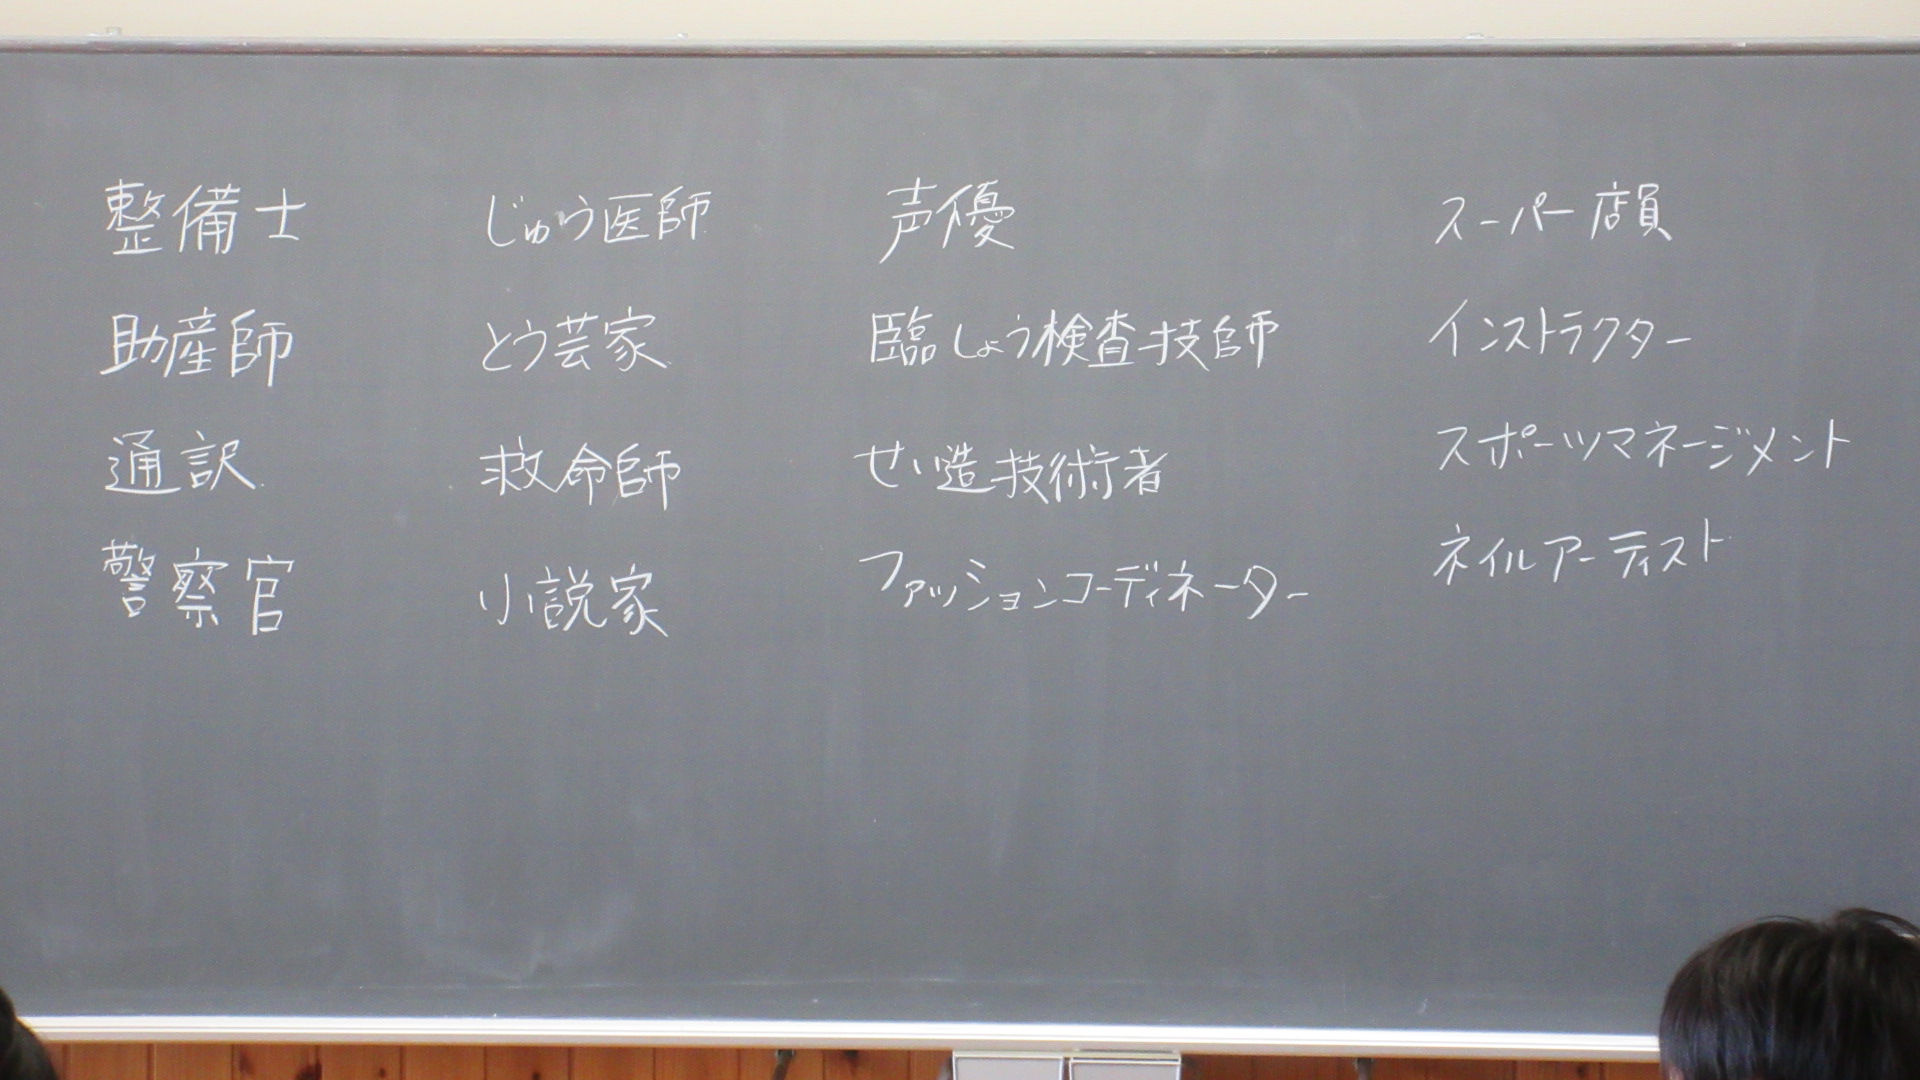 整備士
助産師
通訳
警察官
じゅう医師
とう芸家
救命師
小説家
声優
臨しょう検査技師
せい造技術者
ファッションコーディネーター
スーパー店員
インストラクター
スポーツマネージメント
ネイルアーティスト